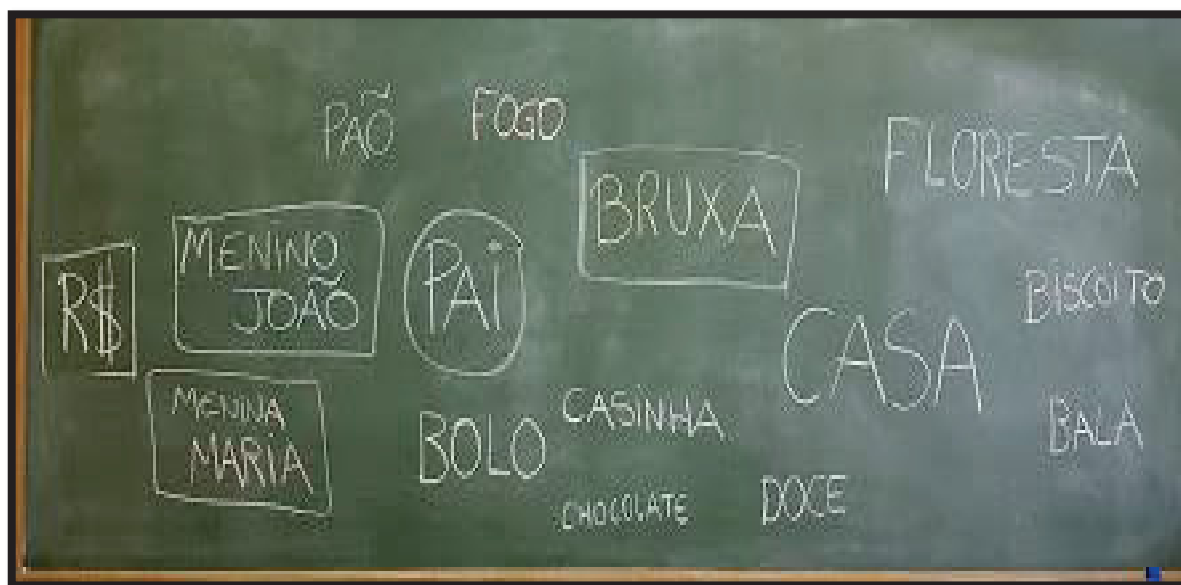 PAÕ
FOGO
FLORESTA
BRUXA
MENINO
JOÃO
PAi
R$
BiSCOiTO
CASA
MENiNA
MARiA
BOLO
CASiNHA
BALA
CHOCOLATE
DOCE